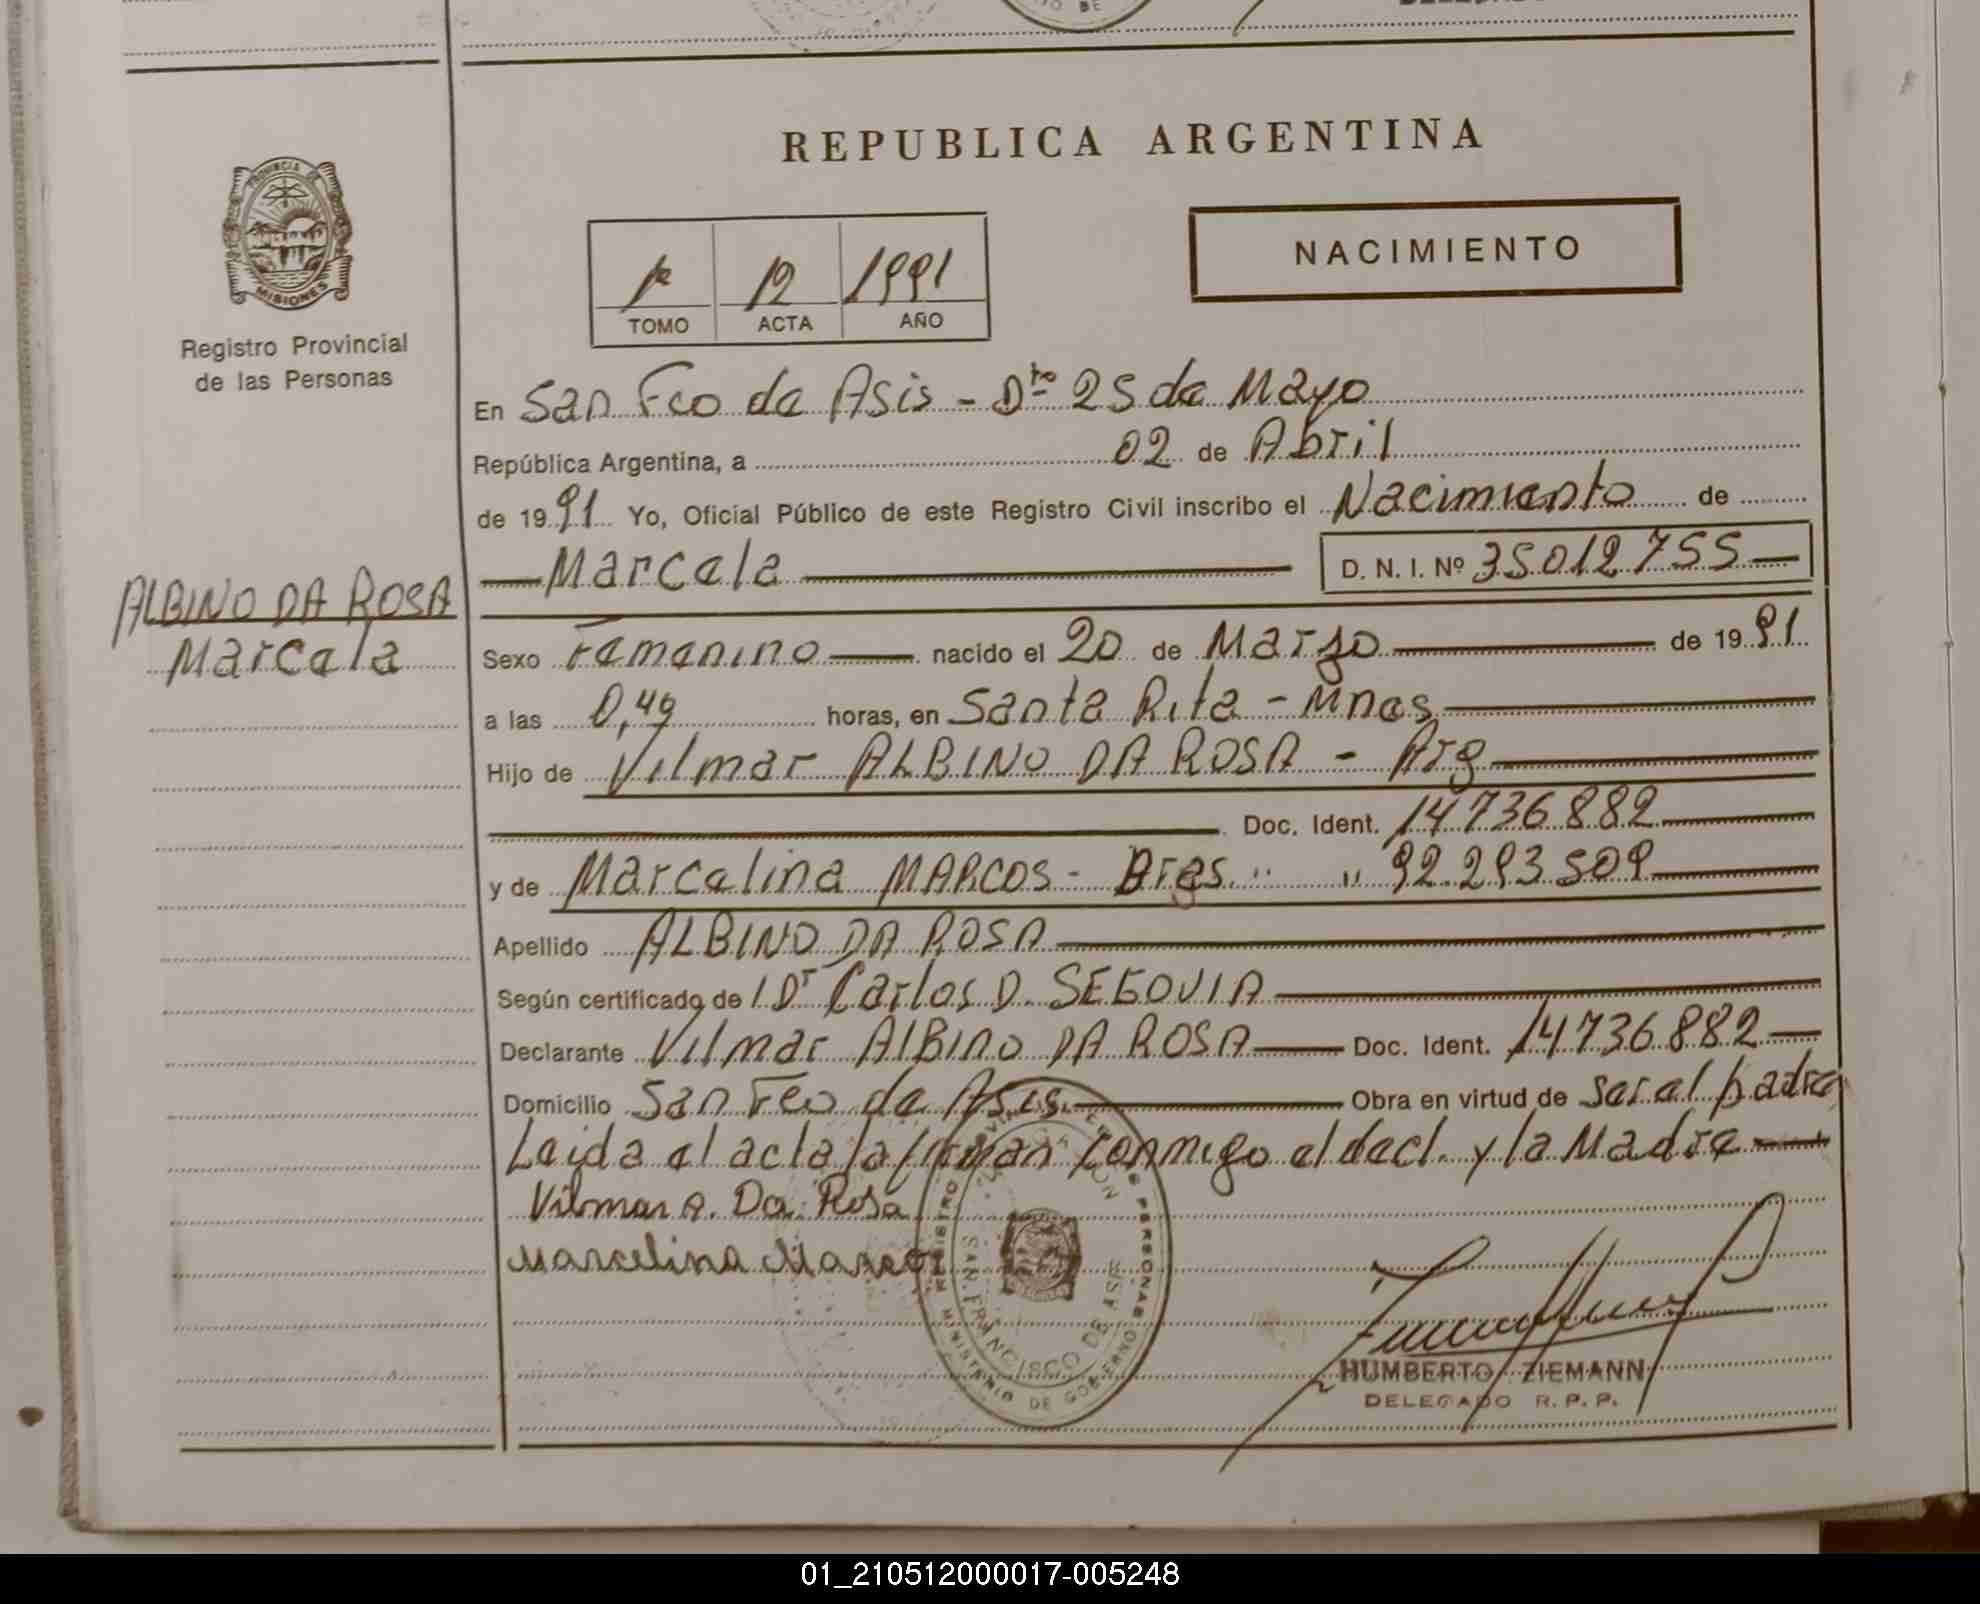 REPUBLICA ARGENTINA
PROVINCIA DE
MISIONES
Registro Provincial
de las Personas
NACIMIENTO
1º 12 1991
TOMO ACTA AÑO
En San Fco de Asis - Dto 25 de Mayo
República Argentina, a 02 de Abril
de 1991 Yo, Oficial Público de este Registro Civil inscribo el Nacimiento de
Marcela D. N. I. Nº 35012755
ALBINO DA ROSA
Marcela
Sexo Femenino nacido el 20 de Marzo de 1991
a las 0,49 horas, en Santa Rita - Mnes
Hijo de Vilmar ALBINO DA ROSA - Arg
Doc. Ident. 14736882
y de Marcelina MARCOS - Bras. " " 92.293.509
Apellido ALBINO DA ROSA
Según certificado de l Dr Carlos D. SEGOVIA
Declarante Vilmar AlBINO DA ROSA Doc. Ident. 14736882
Domicilio San Fco de Asis Obra en virtud de ser el padre
Leida el acta la firman conmigo el decl. y la Madre
Vilmar A. Da Rosa
Marcelina Marcos
REGISTRO PERSONAS
MINISTERIO DE GOBIERNO
SAN FRANCISCO DE ASIS
HUMBERTO ZIEMANN
DELEGADO R. P. P.
01_210512000017-005248